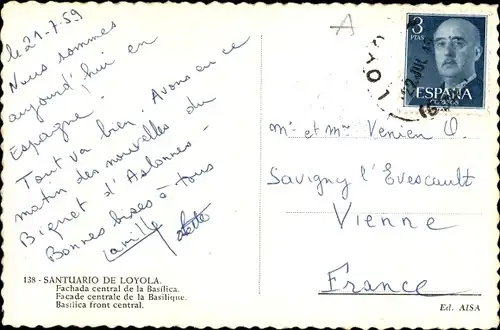 le 21-7-59
Nous sommes
aujourd'hui en
Espagne!
Tout va bien. Avons eu ce
matin des nouvelles du
Biquet d'Aslonnes -
Bonnes bises à tous
138 - SANTUARIO DE LOYOLA.
Fachada central de la Basílica.
Façade centrale de la Basilique.
Basilica front central.
A
3
PTAS
ESPAÑA
CORREOS
LOYO
Mr et Mme Venien O.
Savigny l'Evescault
Vienne
France
Ed. AISA